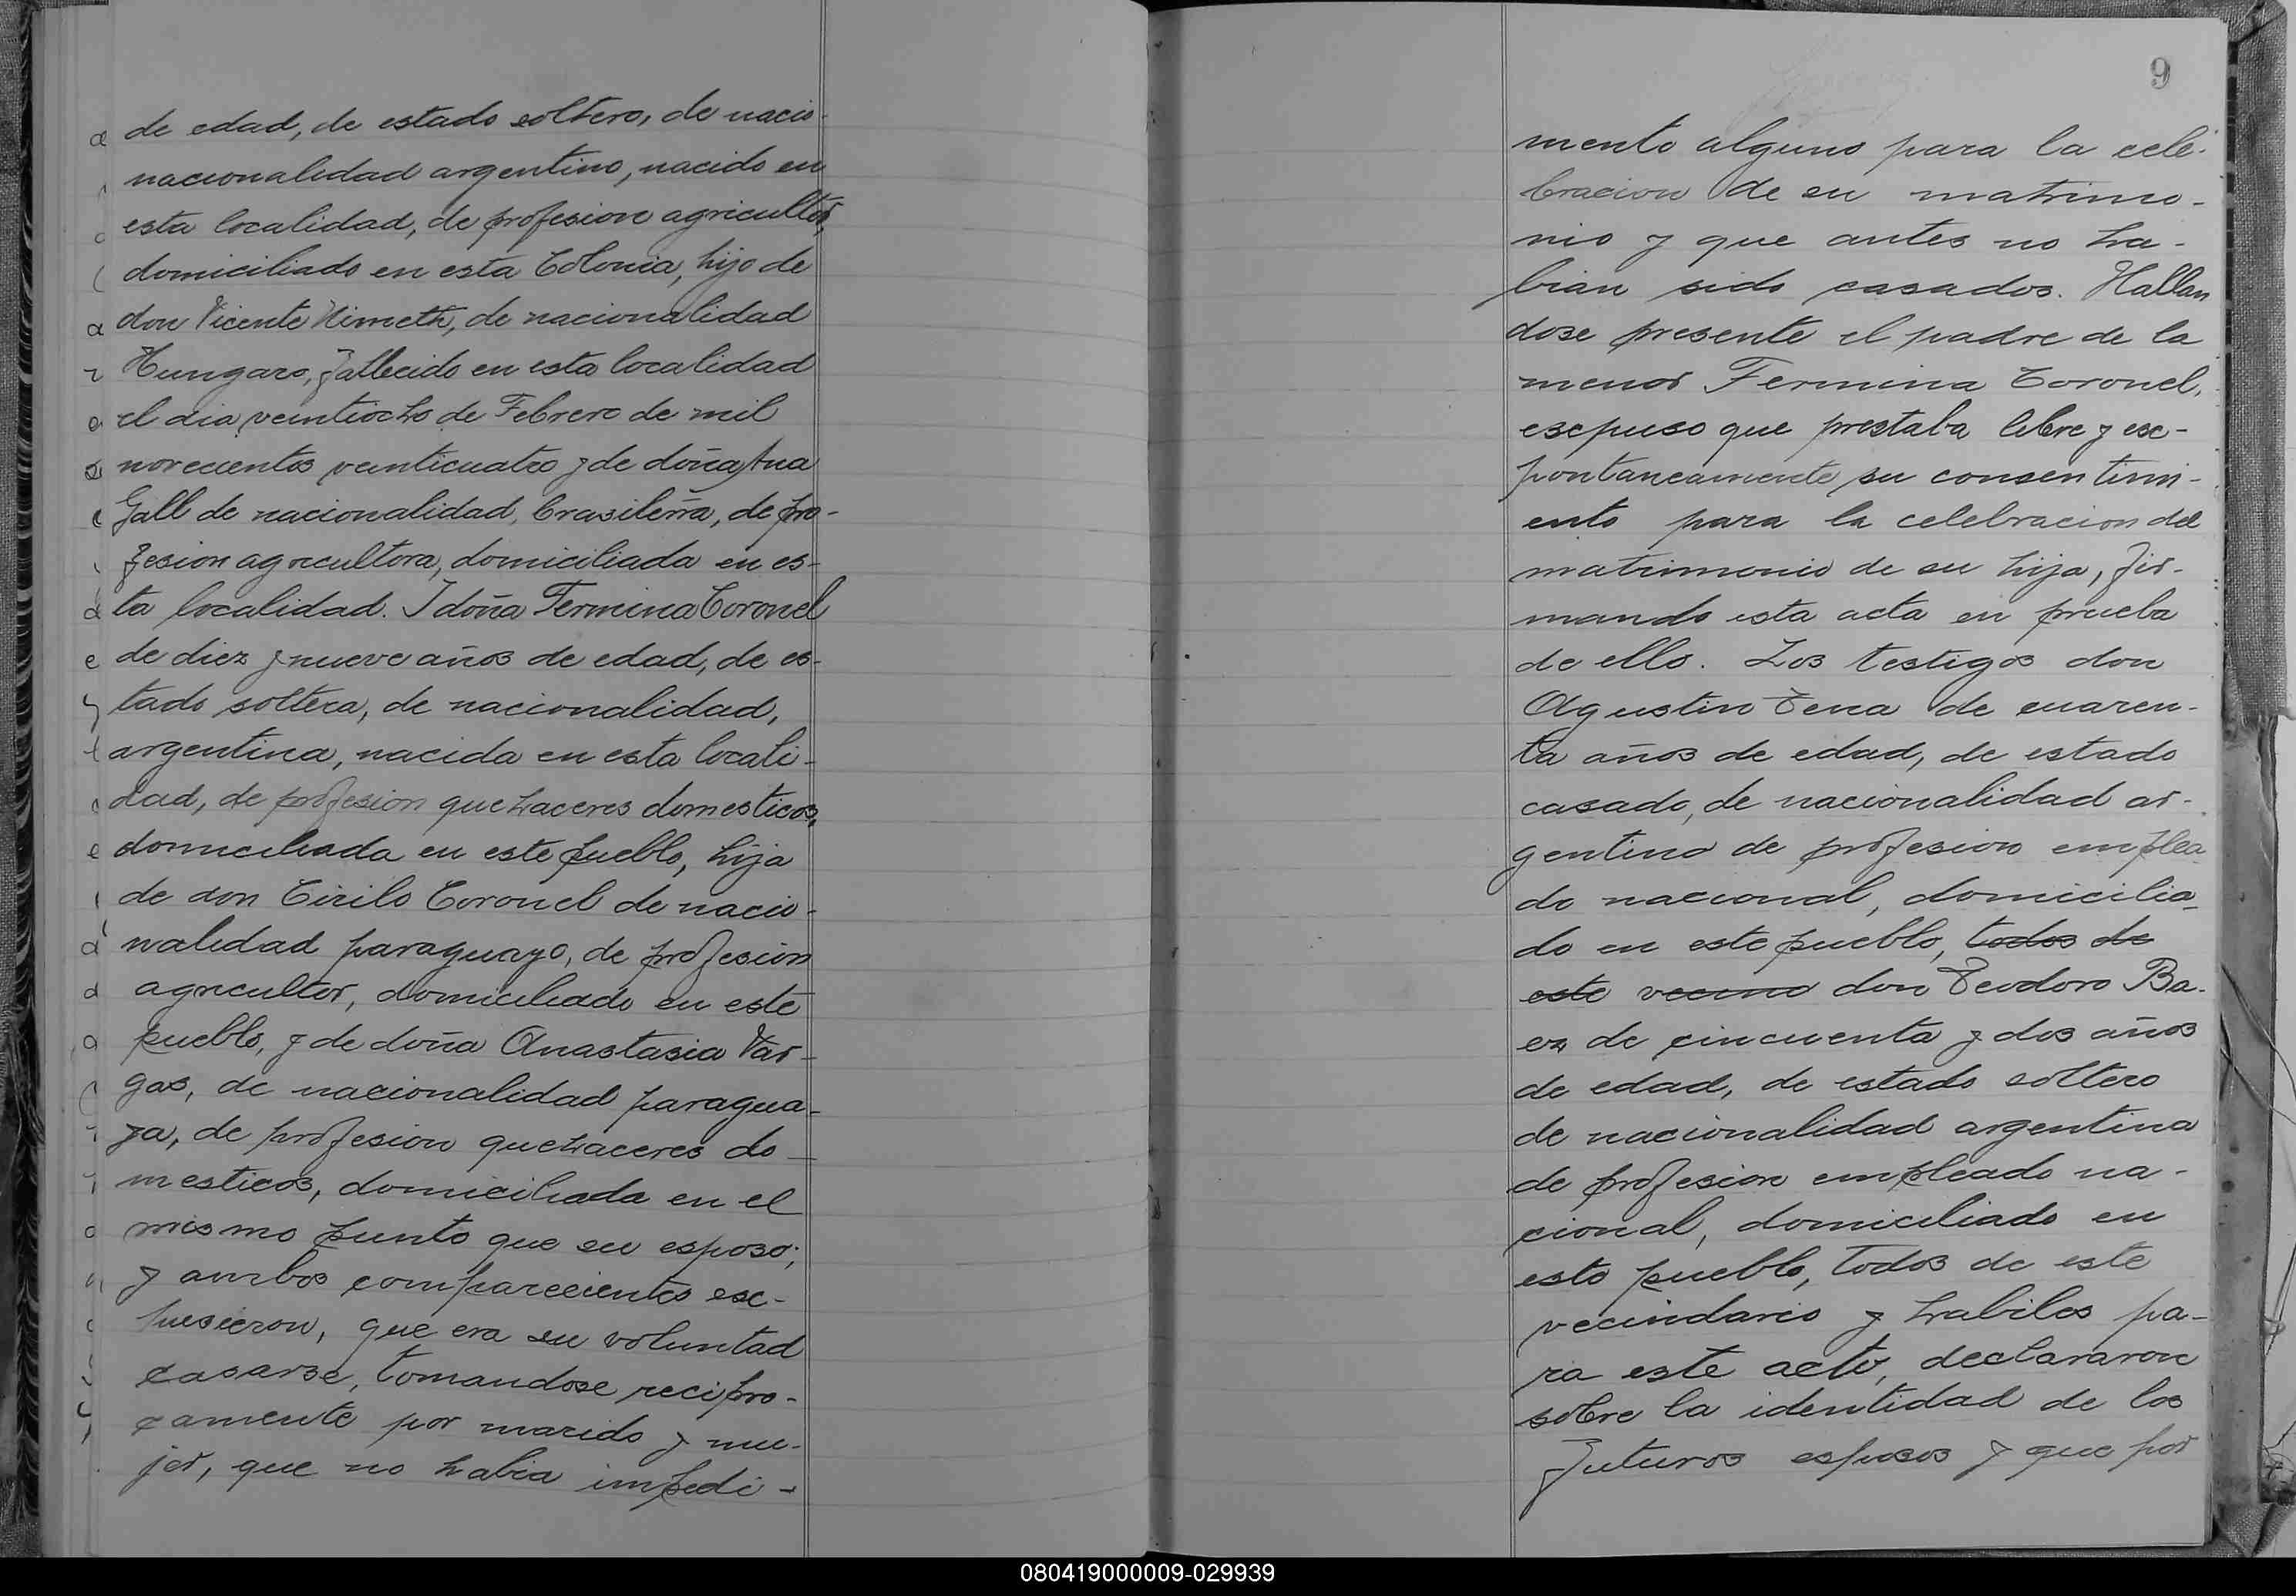 de edad, de estado soltero, de nacio-
nacionalidad argentino, nacido en
esta localidad, de profesion agricultor,
domiciliado en esta Colonia, hijo de
don Vicente Nimeth, de nacionalidad
Hungaro, fallecido en esta localidad
el dia veintiocho de Febrero de mil
novecientos veinticuatro y de doña Ana
Gall de nacionalidad, brasileña, de pro-
fesion agricultora, domiciliada en es-
ta localidad. I doña Fermina Coronel
de diez y nueve años de edad, de es-
tado soltera, de nacionalidad,
argentina, nacida en esta locali-
dad, de profesion quehaceres domesticos,
domiciliada en este pueblo, hija
de don Cirilo Coronel de nacio-
nalidad paraguayo, de profesion
agricultor, domiciliado en este
pueblo, y de doña Anastasia Var-
gas, de nacionalidad paragua-
ya, de profesion quehaceres do-
mesticos, domiciliada en el
mismo punto que su esposo;
y ambos comparecientes esc-
pusieron, que era su voluntad
casarse, tomandose recipro-
camente por marido y mu-
jer, que no habia impedi-
9
mento alguno para la cele-
bracion de su matrimo-
nio y que antes no ha-
bian sido casados. Hallan
dose presente el padre de la
menor Fermina Coronel,
escpuso que prestaba libre y esc-
pontaneamente su consentimi-
ento para la celebracion del
matrimonio de su hija, fir-
mando esta acta en prueba
de ello. Los testigos don
Agustin Tena de cuaren-
ta años de edad, de estado
casado, de nacionalidad ar-
gentino de profesion emplea
do nacional, domicilia-
do en este pueblo, todos de
este vecino don Teodoro Ba-
ez de cincuenta y dos años
de edad, de estado soltero
de nacionalidad argentina
de profesion empleado na-
cional, domiciliado en
este pueblo, todos de este
vecindario y habiles pa-
ra este acto, declararon
sobre la identidad de los
futuros esposos y que por
080419000009-029939